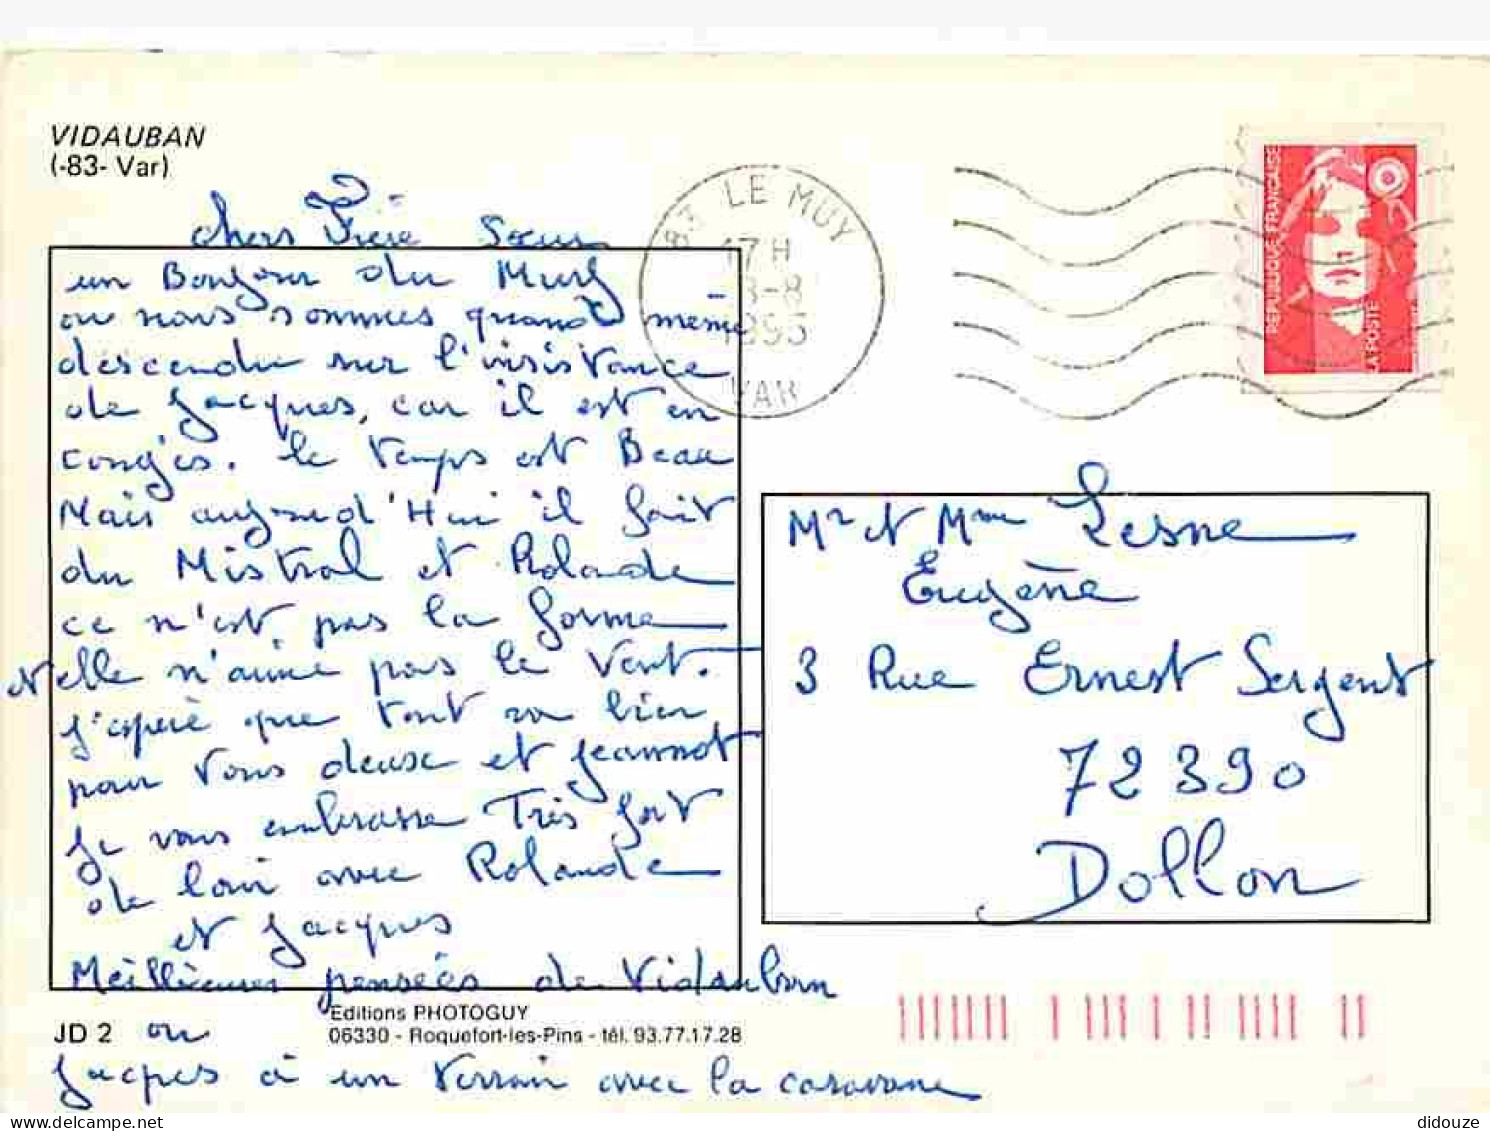 VIDAUBAN
(-83- Var)
chers Frère Sœur
un Bonjour du Muy
ou nous sommes quand même
descendu sur l'insistance
de Jacques, car il est en
congés. le temps est Beau
Mais aujourd'Hui il fait
du Mistral et Rolande
ce n'est pas la forme
et elle n'aime pas le Vent.
J'espère que tout va bien
pour vous deux et Jeannot
Je vous embrasse Très fort
de loin avec Rolande
et Jacques
Meilleures pensées de Vidauban
ou
Jacques à un terrain avec la caravane
JD 2
Editions PHOTOGUY
06330 - Roquefort-les-Pins - tél. 93.77.17.28
83 LE MUY
17H
-8
VAR
REPUBLIQUE FRANÇAISE
LA POSTE
Mr et Mme Lesne
Eugène
3 Rue Ernest Sergent
72390
Dollon
didouze / delcampe.net